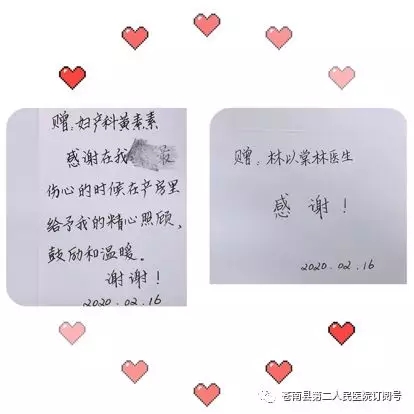 赠:妇产科黄素素
感谢在我最
伤心的时候在产房里
给予我的精心照顾,
鼓励和温暖。
谢谢!
2020.02.16
赠:林以棠林医生
感谢!
2020.02.16
苍南县第二人民医院订阅号